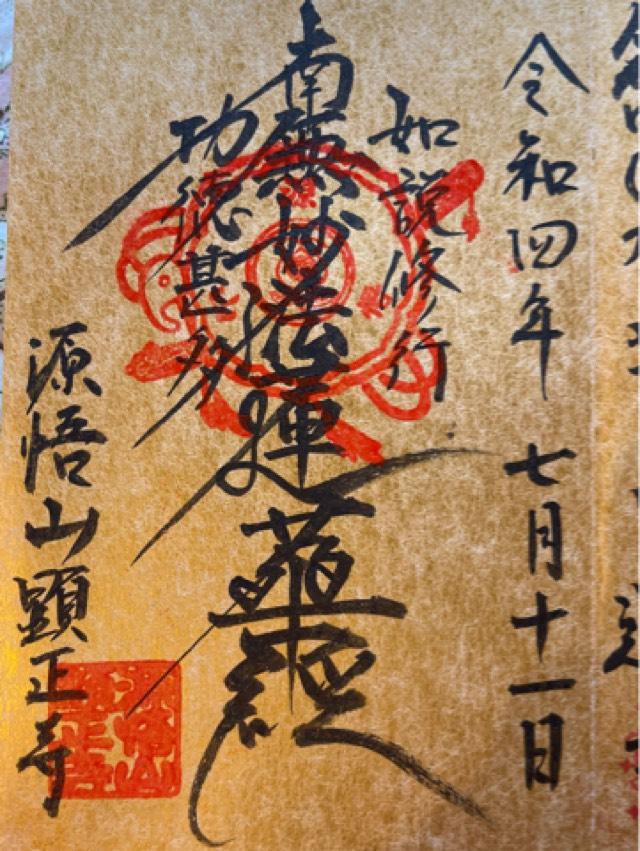 令和四年 七月十一日
如説修行
南無妙法蓮華経
功徳甚多
源悟山顕正寺